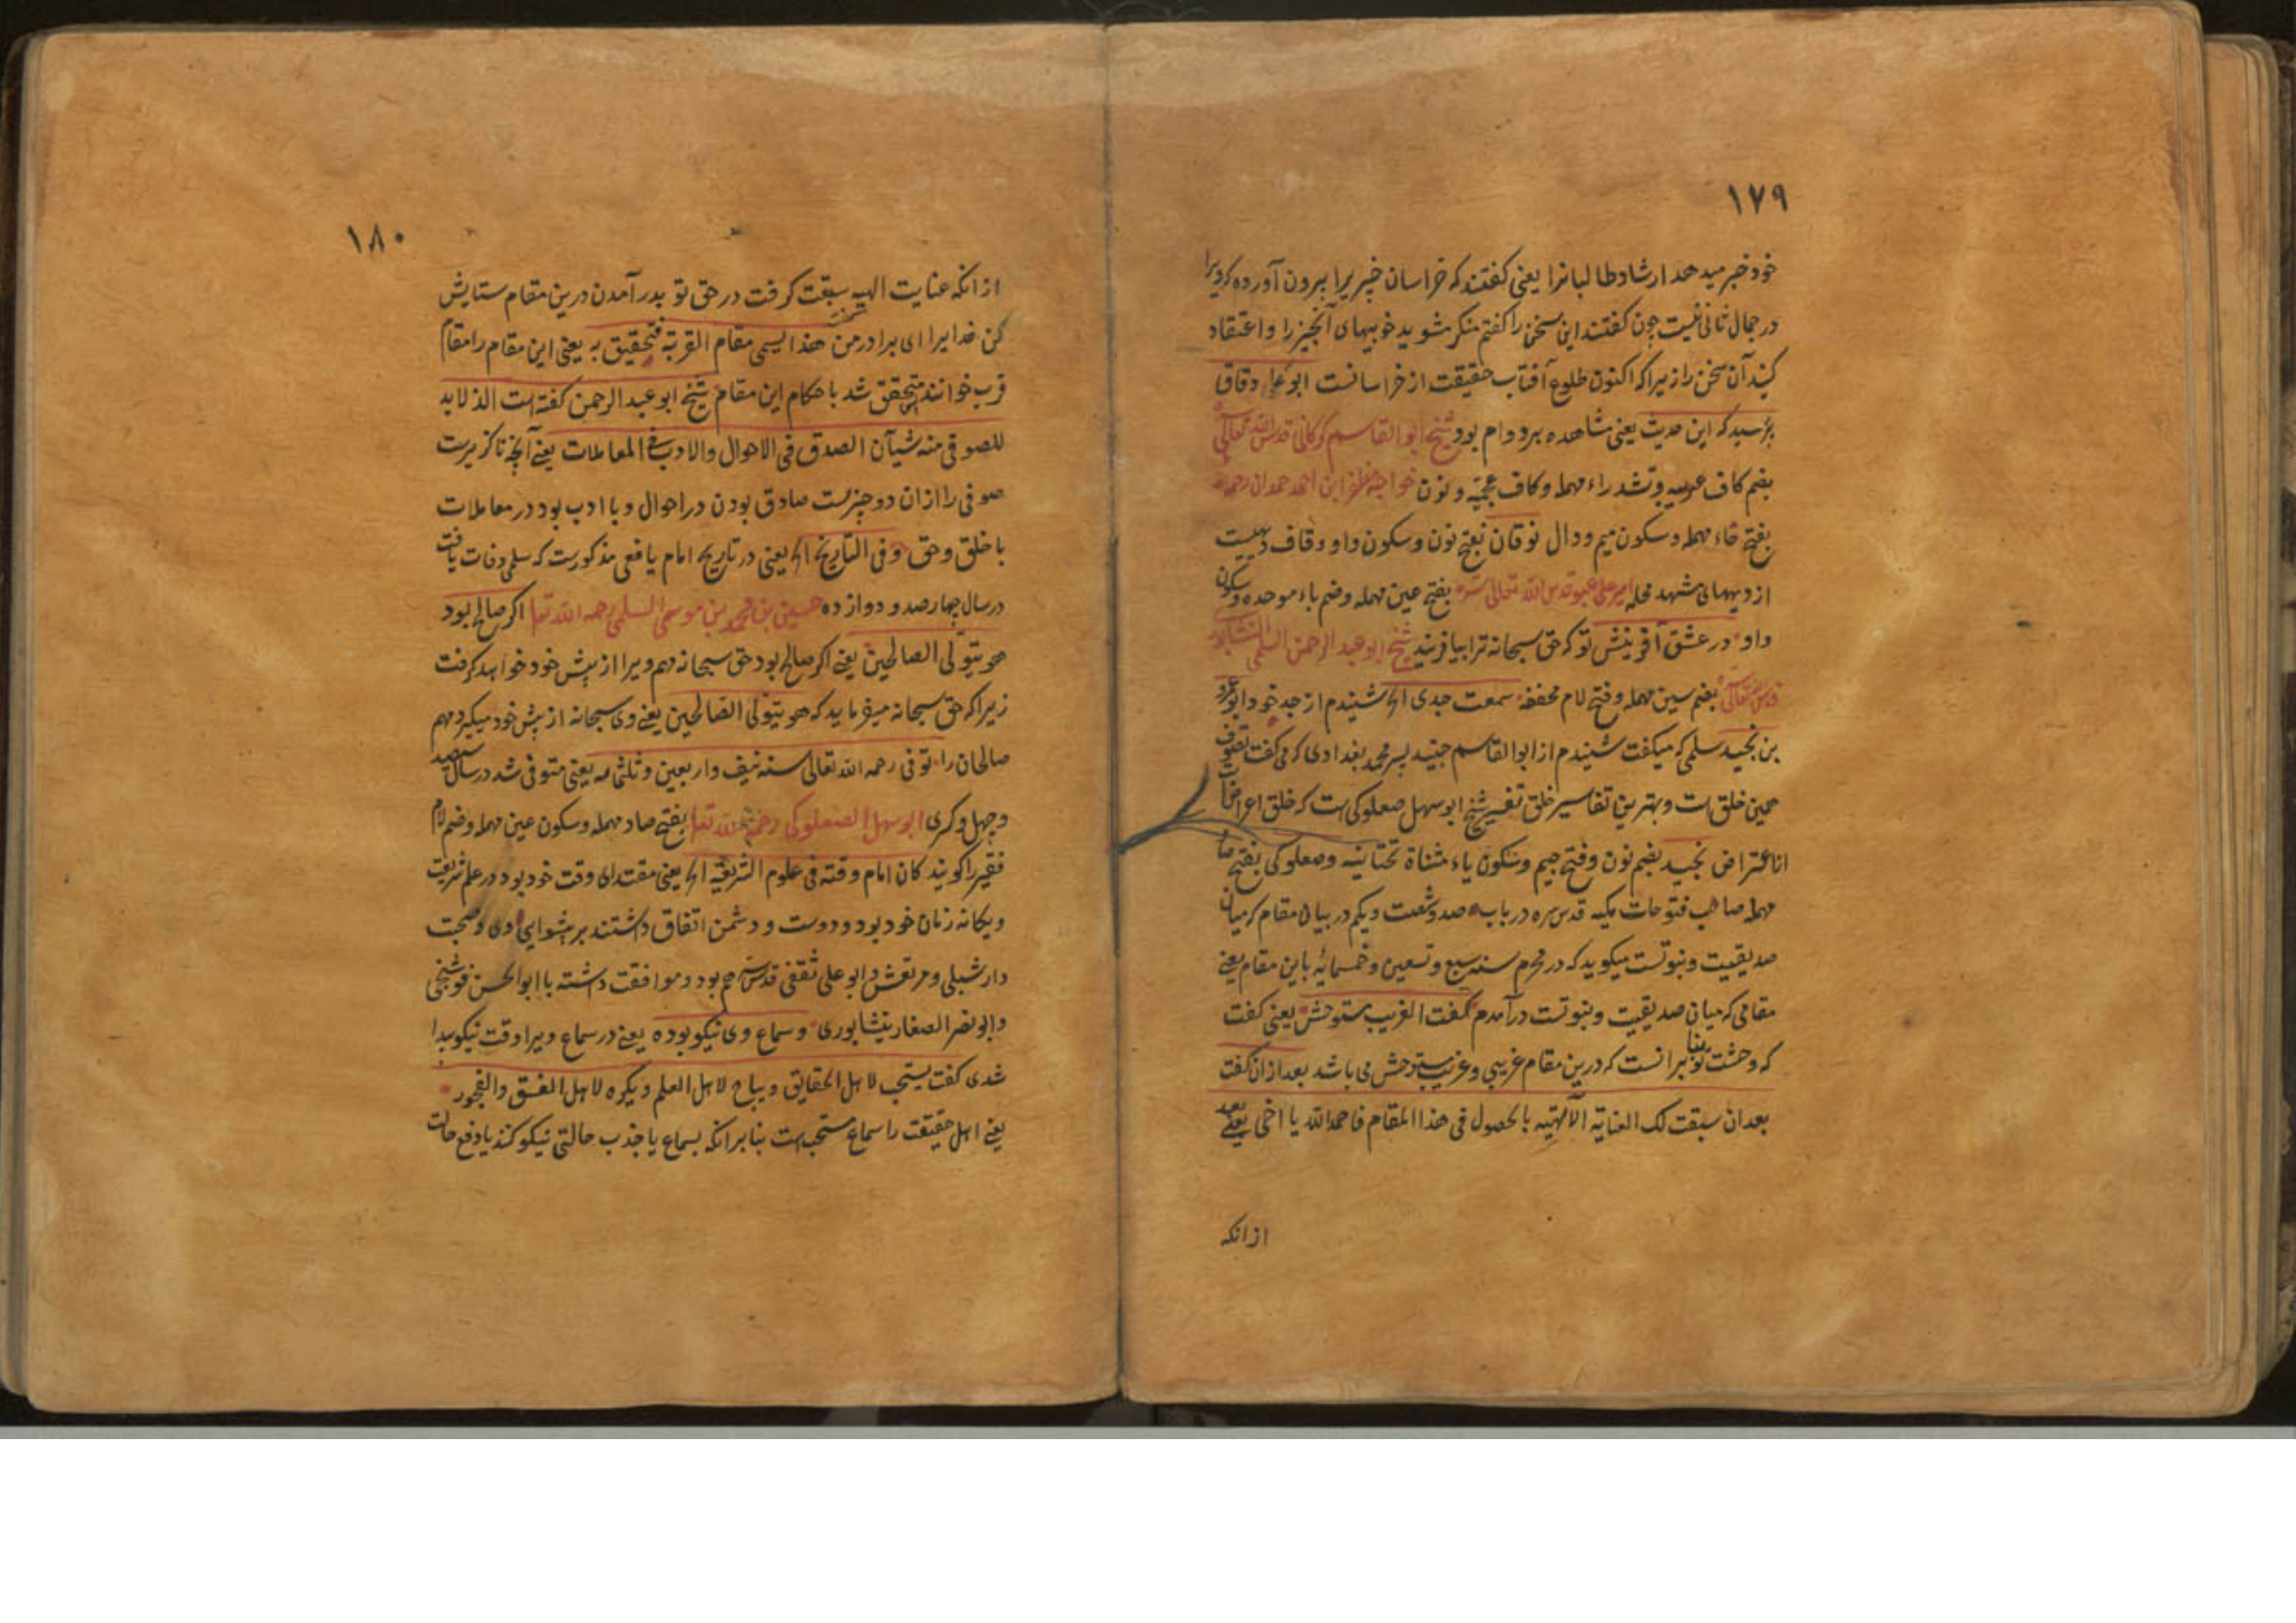 ۱۷۹
خود خبر میدهد ارشاد طالبانرا یعنی گفتند که خراسان خبریرا بیرون آورده که ویرا
در جمال ثانی نیست چون گفتند این سخن را گفتم منکر مشوید خوبیهای آنچیز را و اعتقاد
کنید آن سخن را زیرا که اکنون طلوع آفتاب حقیقت از خراسانست ابوعلی دقاق
پرسید که این حدیث یعنی مشاهده برد وام بود شیخ ابوالقاسم کرکانی قدس الله تعالی
بضم کاف عربیه و تشد راء مهمله و کاف عجمیّه و نون خواجه مظفر ابن احمد حمدان رحمه
بفتح حاء مهمله و سکون میم و دال نوقان بفتح نون و سکون واو و قاف دیهیست
از دیههای مشهد محله امیر علی عبو قدس الله تعالی سره بفتح عین مهمله و ضم باء موحده و سکون
واو در عشق آفرینش تو که حق سبحانه ترا بیافریند شیخ ابو عبد الرحمن السلمی النشابوری
قدس تعالی بضم سین مهمله و فتح لام مخففه سمعت جدی الخ شنیدم از جد خود ابو عمرو
بن نجید سلمی که میکفت شنیدم از ابوالقاسم جنید پسر محمد بغدادی که می کفت تصوف
همین خلق است و بهترین تفاسیر خلق تفسیر شیخ ابو سهل صعلوکی است که خلق اعراضست
از اعتراض نجید بضم نون و فتح جیم و سکون یاء مثناة تحتانیه و صعلوکی بفتح صاد
مهمله صاحب فتوحات مکیه قدس سره در باب صد و شصت و یکم در بیان مقام که میان
صدیقیت و نبوتست میکوید که در محرم سنه سبع و تسعین و خمسمائه باین مقام یعنی
مقامی که میان صدیقیت و نبوتست درآمدم کفت الغریب مستوحش یعنی کفت
که وحشت تو بنا برانست که درین مقام غریبی و غریب مستوحش می باشد بعد ازان کفت
بعد ان سبقت لک العنایة الالهیه بالحصول فی هذا المقام فاحمد الله یا اخی یعنی بعد
ازانکه
۱۸۰
ازانکه عنایت الهیه سبقت کرفت در حق تو بدرآمدن درین مقام ستایش
کن خدایرا ای برادر من هذا لیسمی مقام القربة فتحقیق به یعنی این مقام را مقام
قرب خوانند متحقق شد باحکام این مقام شیخ ابو عبد الرحمن کفته است الذ لابد
للصوفی منه شیآن الصدق فی الاحوال والادب فی المعاملات یعنی آنچه ناکزیرست
صوفی را ازان دو چیزست صادق بودن در احوال و با ادب بود در معاملات
با خلق و حق و فی التاریخ الخ یعنی در تاریخ امام یافعی مذکورست که سلمی وفات یافت
در سال چهارصد و دوازده حسین بن محمد بن موسی السلمی رحمه الله تعا اکر صالح بود
هو یتولی الصالحین یعنی اکر صالح بود حق سبحانه مهم ویرا از پیش خود خواهد کرفت
زیرا که حق سبحانه میفرماید که هو یتولی الصالحین یعنی وی سبحانه از پیش خود میکیرد مهم
صالحان را توفی رحمه الله تعالی سنه نیف و اربعین و ثلثمایه یعنی متوفی شد در سال سیصد
و چهل و کری ابو سهل الصعلوکی رحمة الله تعا بفتح صاد مهمله و سکون عین مهمله و ضم لام
فقیر را کویند کان امام وقته فی علوم الشریعة الخ یعنی مقتدای وقت خود بود در علم شریعت
و یکانه زمان خود بود و دوست و دشمن اتفاق داشتند بر پیشوایی وی و صحبت
دار شبلی و مرتعش و ابو علی ثقفی قدس سرهم بود و موافقت داشته با ابوالحسن فوشنجی
و ابو نصر الصفار نیشابوری و سماع وی نیکو بوده یعنی در سماع ویرا وقت نیکو پیدا
شدی کفت یستحب لاهل الحقایق و یباح لاهل العلم و یکره لاهل الفسق و الفجور
یعنی اهل حقیقت را سماع مستحب است بنابر انکه بسماع یا جذب حالتی نیکو کنند یا دفع حالت